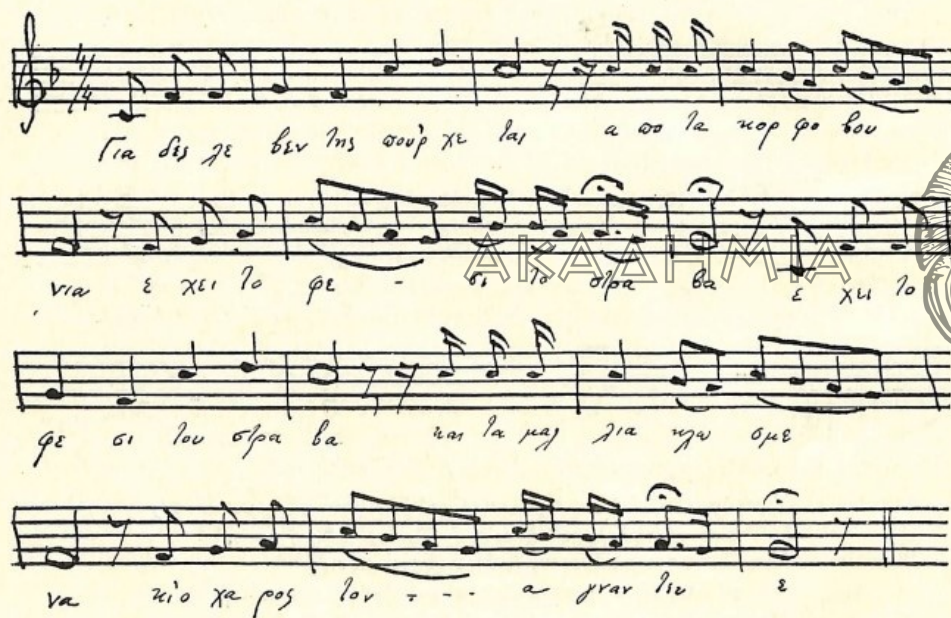 Για δες λε βεν της πούρ χε ται α πο τα κορ φο βου
νια ε χει το φε - σι το στρα βα ε χει το
ΑΚΑΔΗΜΙΑ
φε σι του στρα βα και τα μαλ λια κλω σμε
να κι'ο χα ρος τον - - - α γναν τευ ε